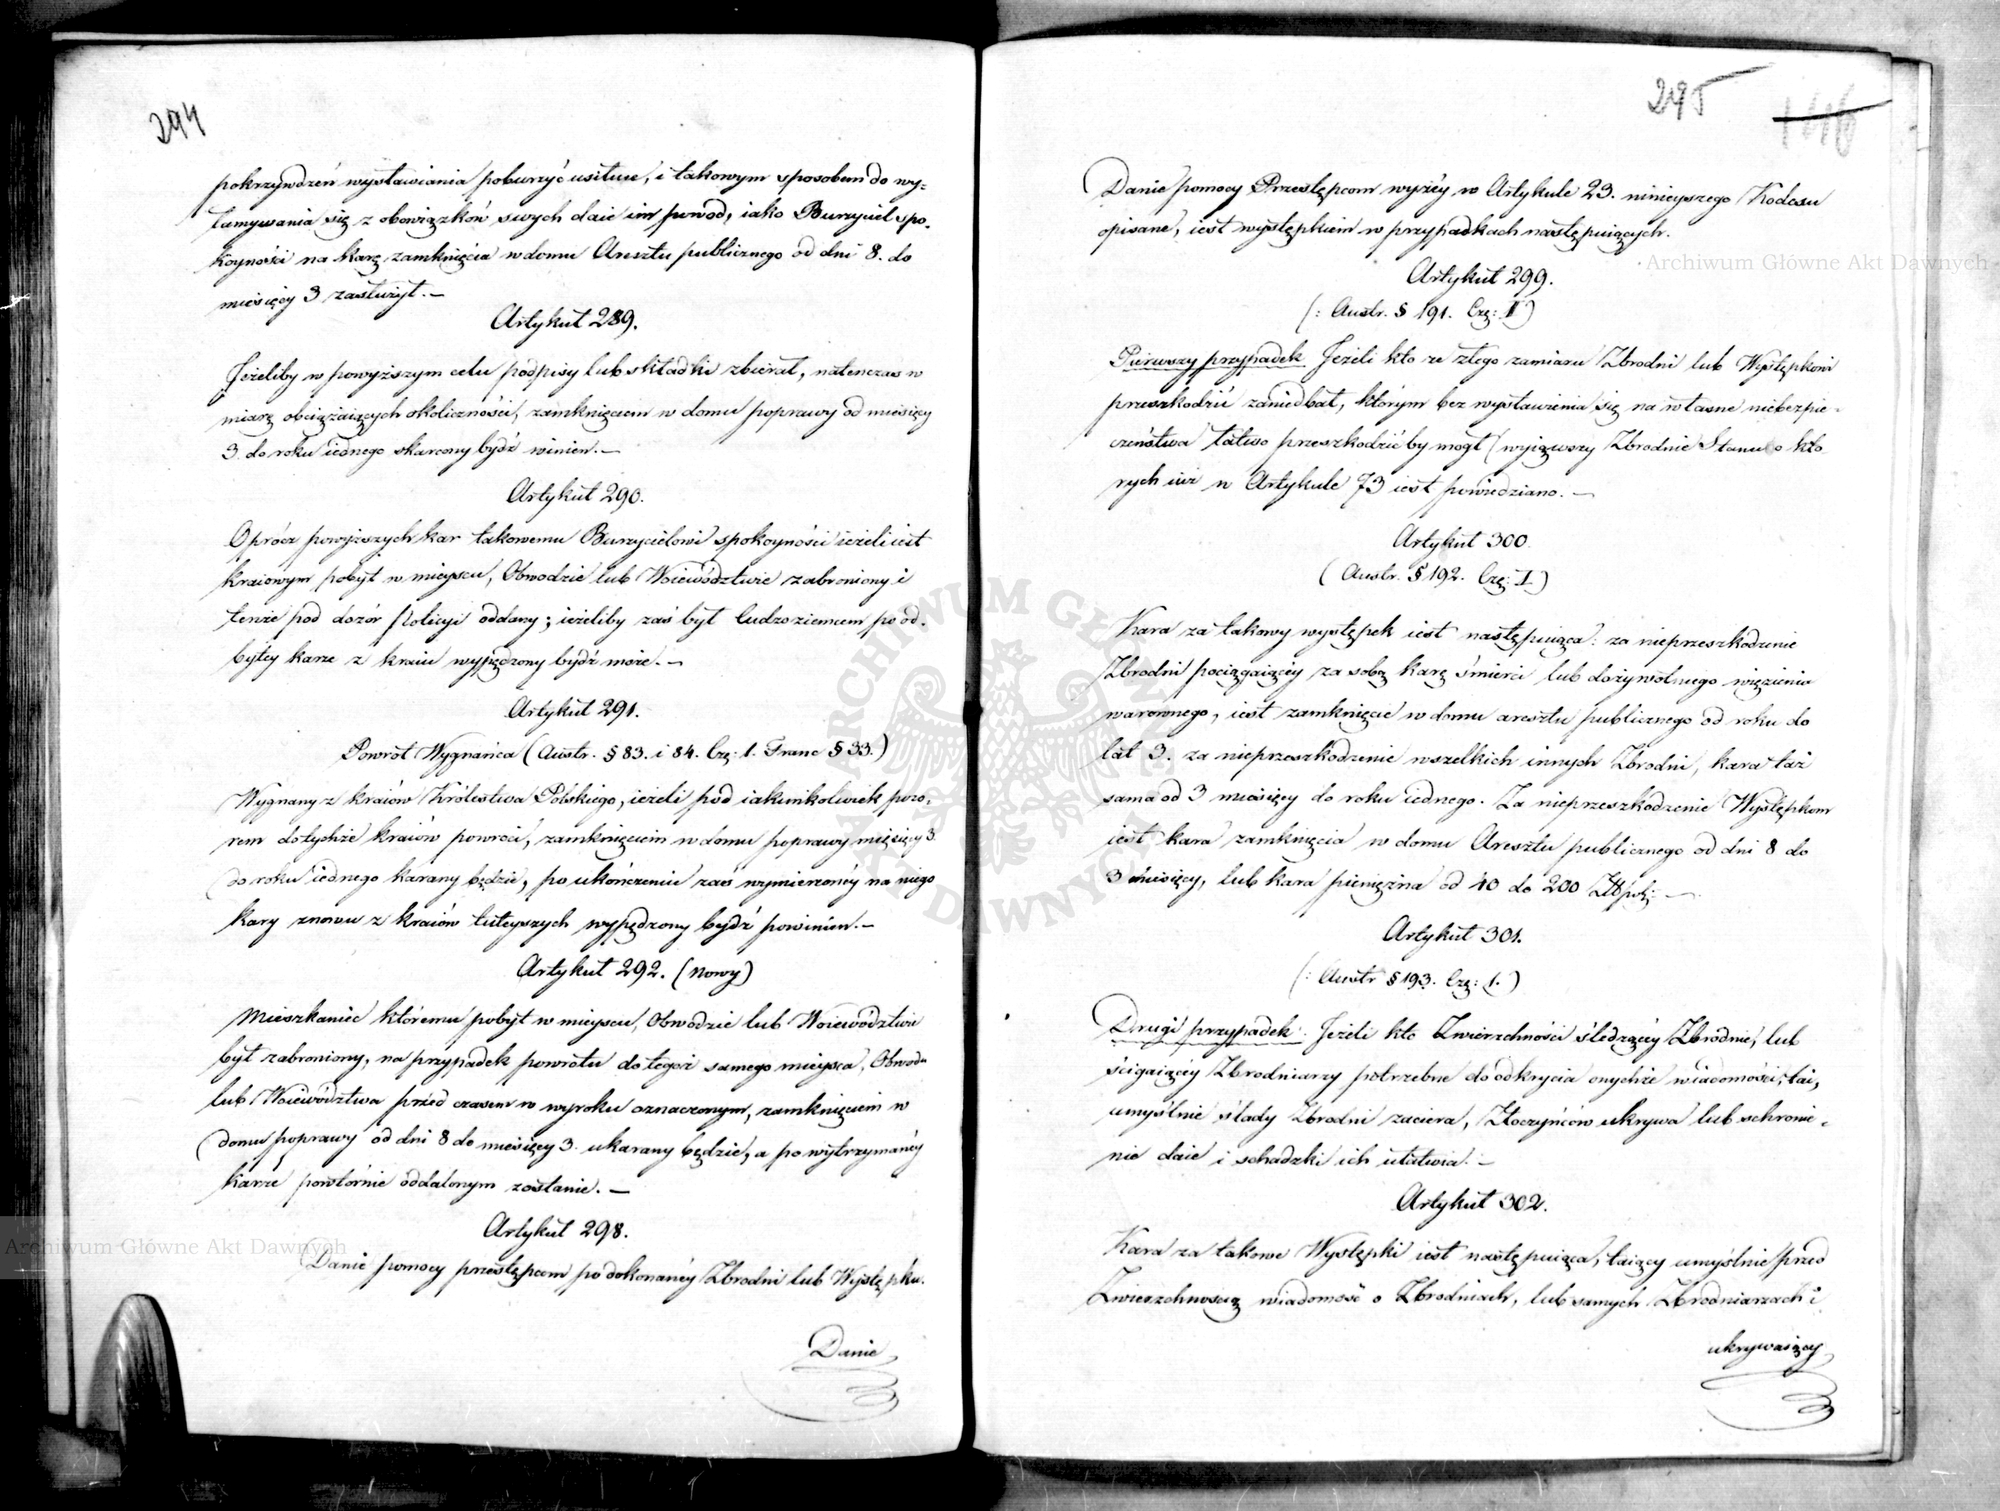 294
pokrzywdzeń wystawiania poburzyć usiłuie, i takowym sposobem do wy=
łamywania się z obowiązków swych daie im powod, iako Burzyciel spo-
koyności na karę zamknięcia w domu Aresztu publicznego od dni 8. do
miesięcy 3 zasłużył. —
Artykuł 289.
Jeżeliby w powyższym celu podpisy lub składki zbierał, natenczas w
miarę obciążaiących okoliczności, zamknięciem w domu poprawy od miesięcy
3. do roku iednego skarcony bydź winien. —
Artykuł 290.
Oprócz powyższych kar takowemu Burzycielowi spokoyności ieżeli iest
kraiowym pobyt w mieyscu, Obwodzie lub Woiewództwie zabroniony i
tenże pod dozór Policyi oddany; ieżeliby zaś był Cudzoziemcem po od-
bytey karze z kraiu wypędzony bydź może. —
Artykuł 291.
Powrót Wygnańca (Austr. § 83. i 84. Czę: 1. Franc § 33.)
Wygnany z kraiów Królestwa Polskiego, ieżeli pod iakimkolwiek pozo-
rem do tychże kraiów powróci, zamknięciem w domu poprawy miesięcy 3
do roku iednego karany będzie, po ukończeniu zaś wymierzonéy na niego
kary znowu z kraiów tuteyszych wypędzony bydź powinien. —
Artykuł 292. (nowy)
Mieszkaniec któremu pobyt w mieyscu, Obwodzie lub Woiewództwie
był zabroniony, na przypadek powrotu do tegoż samego mieysca, Obwodu
lub Woiewództwa przed czasem w wyroku oznaczonym, zamknięciem w
domu poprawy od dni 8 do miesięcy 3. ukarany będzie, a po wytrzymanéy
karze powtórnie oddalonym zostanie. —
Artykuł 298.
Danie pomocy przestępcom po dokonanéy Zbrodni lub Występku.
Danie
295
Danie pomocy Przestępcom wyżéy w Artykule 23. ninieyszego Kodexu
opisane, iest występkiem w przypadkach następuiących.
Artykuł 299.
(: Austr. § 191. Czę: I)
Pierwszy przypadek. Jeżeli kto ze złego zamiaru Zbrodni lub Występkom
przeszkodzić zaniedbał, którym bez wystawienia się na własne niebezpie-
czeństwa łatwo przeszkodzić by mógł (wyiąwszy Zbrodnie Stanu o któ-
rych iuż w Artykule 73 iest powiedziano. —
Artykuł 300.
(Austr. § 192. Czę: I)
Kara za takowy występek iest następuiąca: za nieprzeszkodzenie
Zbrodni pociągaiącéy za sobą karę śmierci lub dożywotniego więzienia
warownego, iest zamknięcie w domu aresztu publicznego od roku do
lat 3. za nieprzeszkodzenie wszelkich innych Zbrodni, kara taż
sama od 3 miesięcy do roku iednego. Za nieprzeszkodzenie Występkom
iest kara zamknięcia w domu Aresztu publicznego od dni 8 do
3 miesięcy, lub kara pieniężna od 40 do 200 Złłpol: —
Artykuł 301.
(: Austr § 193. Czę: 1.)
Drugi przypadek. Jeżeli kto Zwierzchności śledzącéy Zbrodnie, lub
ścigaiącéy Zbrodniarzy potrzebne do odkrycia onychże wiadomości, tai,
umyślnie ślady Zbrodni zaciera, Złoczyńców ukrywa lub schronie-
nie daie i schadzki ich ułatwia. —
Artykuł 302.
Kara za takowe Występki iest następuiąca, taiący umyślnie przed
Zwierzchnością wiadomość o Zbrodniach, lub samych Zbrodniarzach i
ukrywaiący
Archiwum Główne Akt Dawnych
Archiwum Główne Akt Dawnych
ARCHIWUM GŁÓWNE AKT DAWNYCH